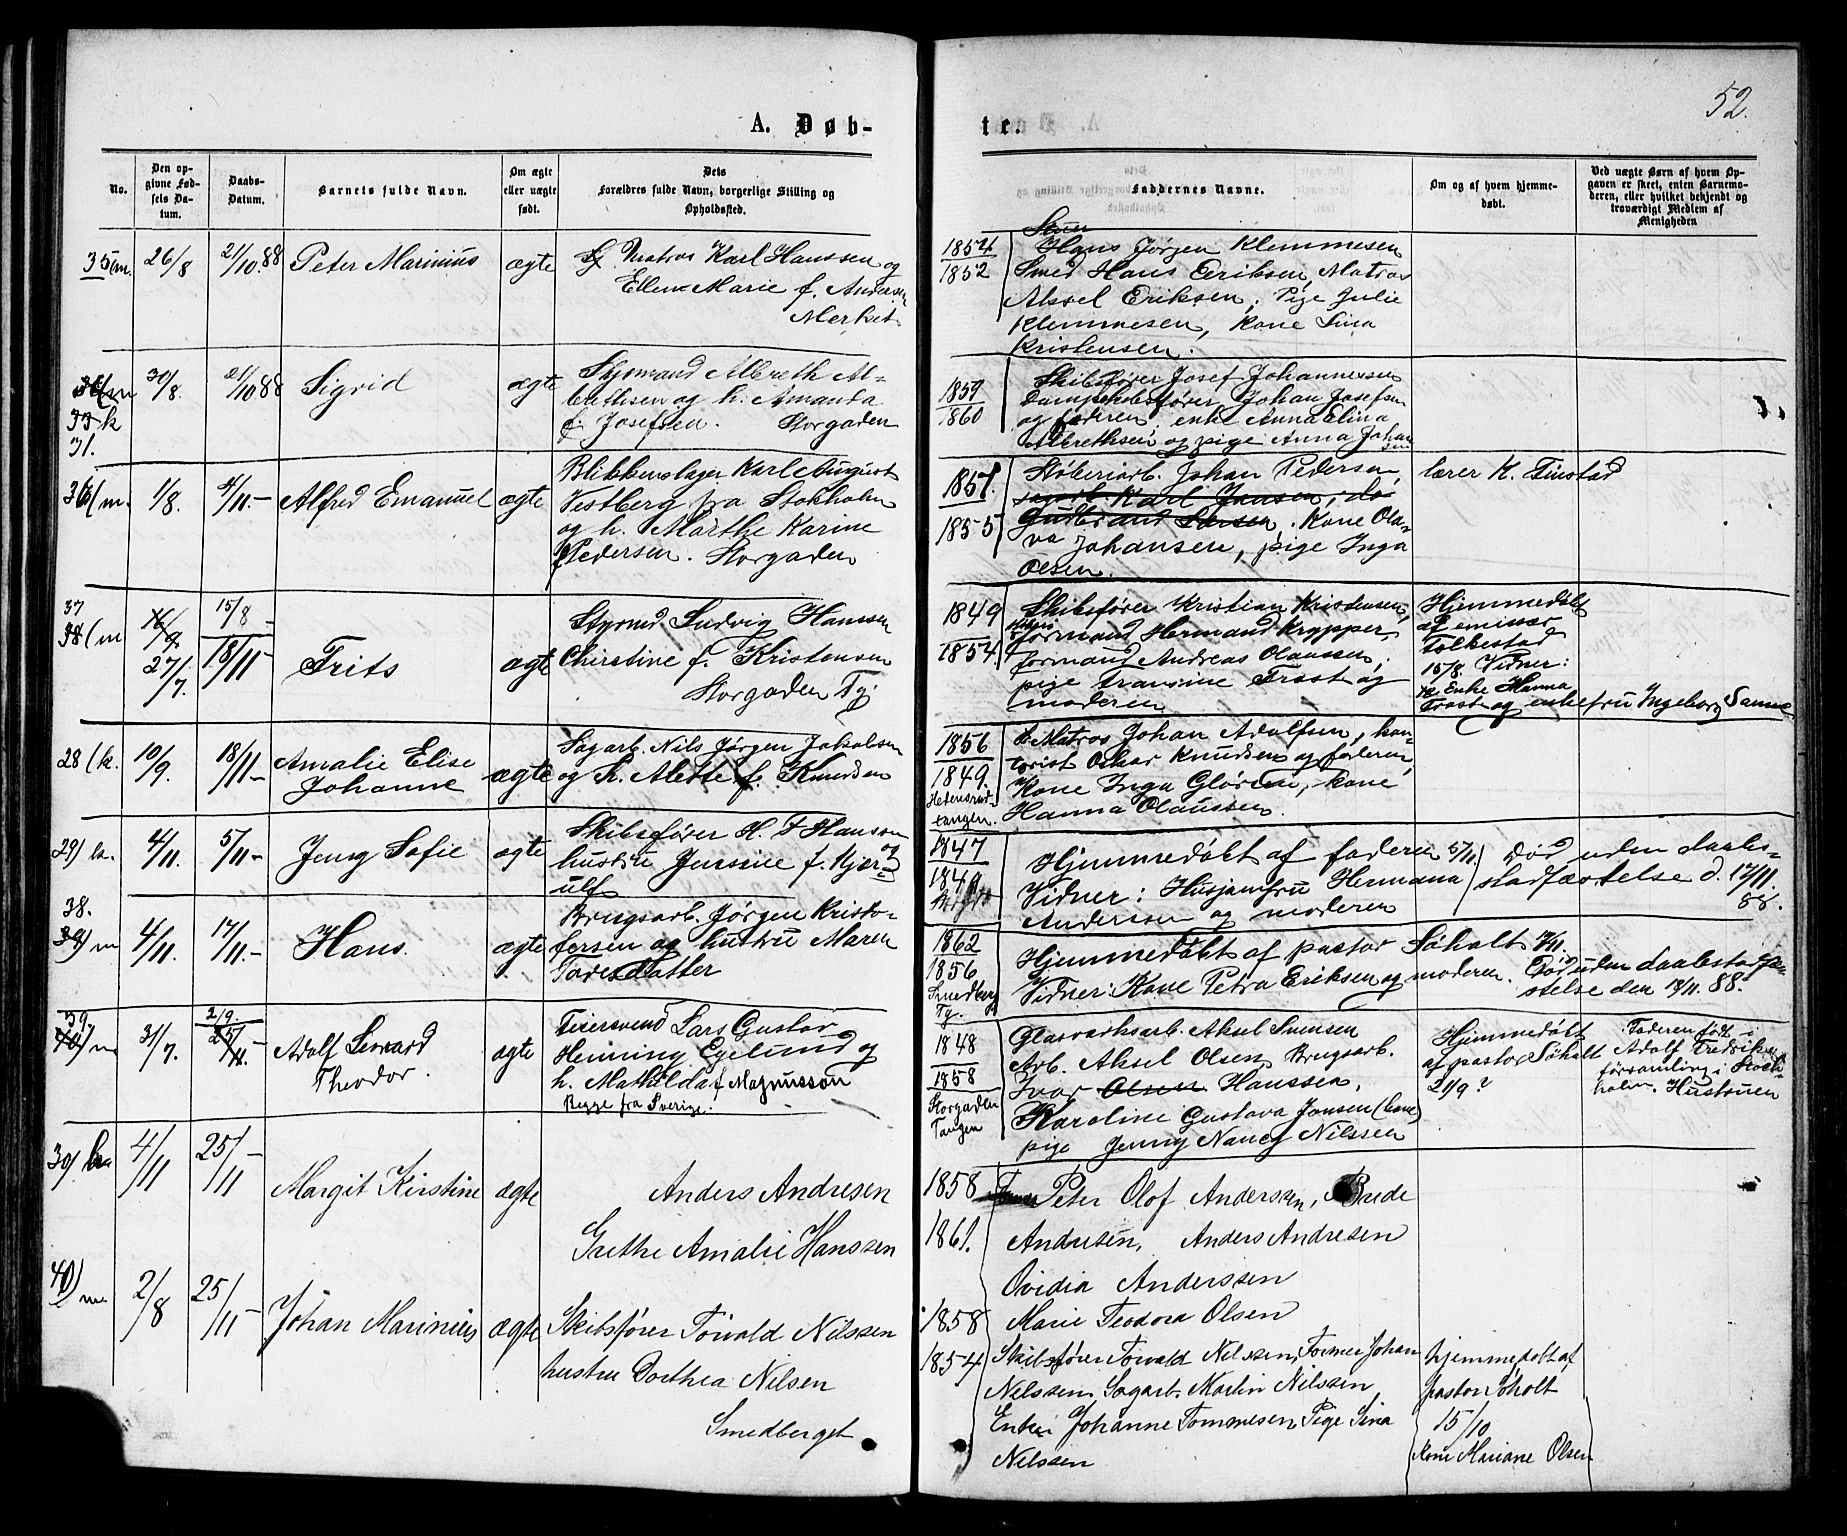 52.
A. Døb-
te.
No.
Den op-
givne Fød-
sels Da-
tum.
Daabs-
Datum.
Barnets fulde Navn.
Om ægte
eller uægte
født.
Dets
Forældres fulde Navn, borgerlige Stilling og
Opholdssted.
Faddernes Navne.
Om og af hvem hjemme-
døbt.
Ved uægte Børn af hvem Op-
gaven er skeet, enten Barnemo-
deren, eller hvilket bekjendt og
troværdigt Medlem af
Menigheden
35/m. 26/8 21/10.88 Peter Marinius ægte Matros Karl Hanssen og
Ellen Marie f. Andersen
Merket
1854
1852
Hans Jørgen Klemmesen
Smed Hans Eriksen, Matros
Aksel Eriksen, Pige Julie
Klemmesen, Kone Sina
Kristensen.
31. 30/8. 21/10 88 Sigrid ægte Styrmand Albreth Al-
brethsen og h. Amanda
f. Josefsen. Storgaden
1859
1860
Skibsfører Josef Johannesen
Dampskibsfører Johan Josefsen
og faderen, enke Anna Elina
Albrethsen og pige Anna Johan
sen
36/m. 1/8. 4/11.- Alfred Emanuel ægte Blikkenslager Karl August
Vestberg fra Stokholm
og h. Marthe Karine
Pedersen. Storgaden
1857.
1855
Støberiarb. Johan Pedersen,
sagarb. Karl Jansen, do
Gudbrand Larsen. Kone Ola-
va Johansen, pige Inga
Olsen.
lærer K. Finstad
37
38/m 16/9. 27/7. 15/8 - 18/11 Frits ægte Styrmd Ludvig Hanssen
Christine f. Kristensen
Storgaden Tg.
1849
1854.
Skibsfører Kristian Kristensen,
formand Hermand Krypper
formand Andreas Olaussen,
pige Fransine Frost og
moderen.
Hjemmedøbt
af emissær
Folkestad
15/8. Vidner:
Enke Hanna
Frost og enkefru Ingeborg Sanne
28/k. 10/9. 18/11- Amalie Elise
Johanne ægte Sagarb. Nils Jørgen Jakobsen
og h. Alette f. Knudsen
1856
1849.
tangen.
Matros Johan Adolfsen, kon-
torist Oskar Knudsen og faderen,
Kone Inga Glørsen, kone
Hanna Olaussen.
29/k. 4/11. 5/11- Jeny Sofie ægte Skibsfører H. F Hanssen
og
hustru Jensine f. Kjer-
ulf
1847
1849
Hjemmedøbt af faderen 5/11.
Vidner: Husjomfru Hermana
Andersen og moderen
Død uden daabs-
stadfæstelse d. 17/11.
88.
38.
39/m 4/11. 17/11.- Hans. ægte Brugsarb. Jørgen Kristo-
fersen og hustru Maren
Toresdatter
1862
1856
Smedberg
Tg.
Hjemmedøbt af pastor Søholt 17/11.
Vidner: Kone Petra Eriksen og moderen. Død uden daabstadfæ-
stelse den 19/11. 88.
39
40/m 31/7. 2/9. 25/11- Adolf Levard
Theodor. ægte Feiersvend Lars Gustav
Henning Egelund og
h. Mathilda f. Magnusson
Begge fra Sverige.
1848
1858
Storgaden
Tangen
Glasværksarb. Aksel Svensen
Arb. Aksel Olsen, Brugsarb.
Ivar Olsen Hanssen,
Karoline Gustava Jansen
pige Jenny Nancy Nilssen
Hjemmedøbt
af pastor Søholt
2/9?
Faderen født i
Adolf Fredriks
församling i Stock-
holm. Hustruen
30/k 4/11 25/11- Margit Kirstine ægte Anders Andresen
Grethe Amalie Hanssen
1858
1861.
Peter Olof Anderssen, Brede
Andresen, Anders Andresen
Ovidia Anderssen
Marie Teodora Olsen
40/m. 2/8 25/11- Johan Marinius ægte Skibsfører Torvald Nilssen
hustru Dorthea Nilsen
Smedberget
1858
1854
Skibsfører Torvald Nilssen, Former Johan
Nilssen, Sagarb. Martin Nilssen
Enke Johanne Tommesen, Pige Sina
Nilssen
hjemmedøbt af
pastor Søholt
15/10
Kone Mariane Olsen